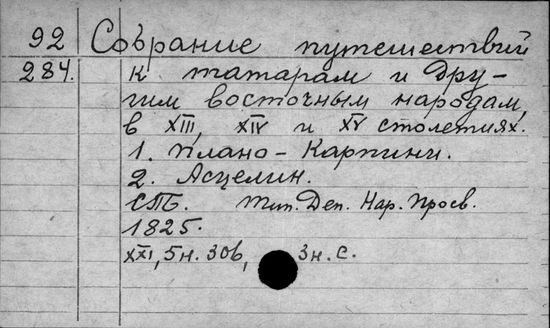 92 Собрание путешествий
284. к татарам и дру-
гим восточным народам,
в XIII, XIV и XV столетиях.
1. Плано-Карпини.
2. Асцелин.
СПБ. Тип. Деп. Нар. Просв.
1825.
XXI, 5 н. 306, 3 н. с.